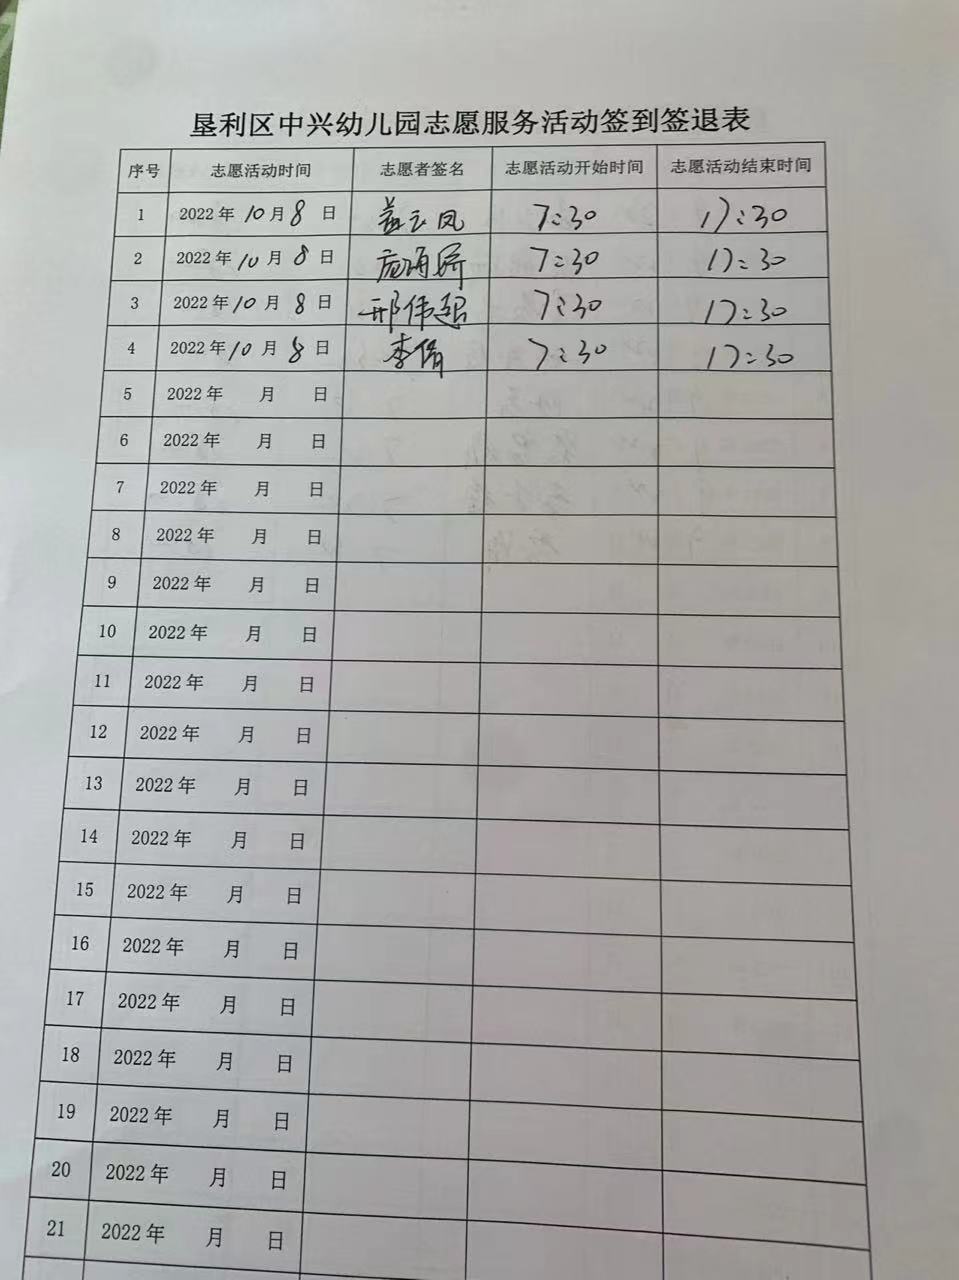 垦利区中兴幼儿园志愿服务活动签到签退表
序号 志愿活动时间 志愿者签名 志愿活动开始时间 志愿活动结束时间
1 2022年10月8日 云凤 7:30 17:30
2 2022年10月8日 7:30 17:30
3 2022年10月8日 邢伟超 7:30 17:30
4 2022年10月8日 李倩 7:30 17:30
5 2022年 月 日
6 2022年 月 日
7 2022年 月 日
8 2022年 月 日
9 2022年 月 日
10 2022年 月 日
11 2022年 月 日
12 2022年 月 日
13 2022年 月 日
14 2022年 月 日
15 2022年 月 日
16 2022年 月 日
17 2022年 月 日
18 2022年 月 日
19 2022年 月 日
20 2022年 月 日
21 2022年 月 日